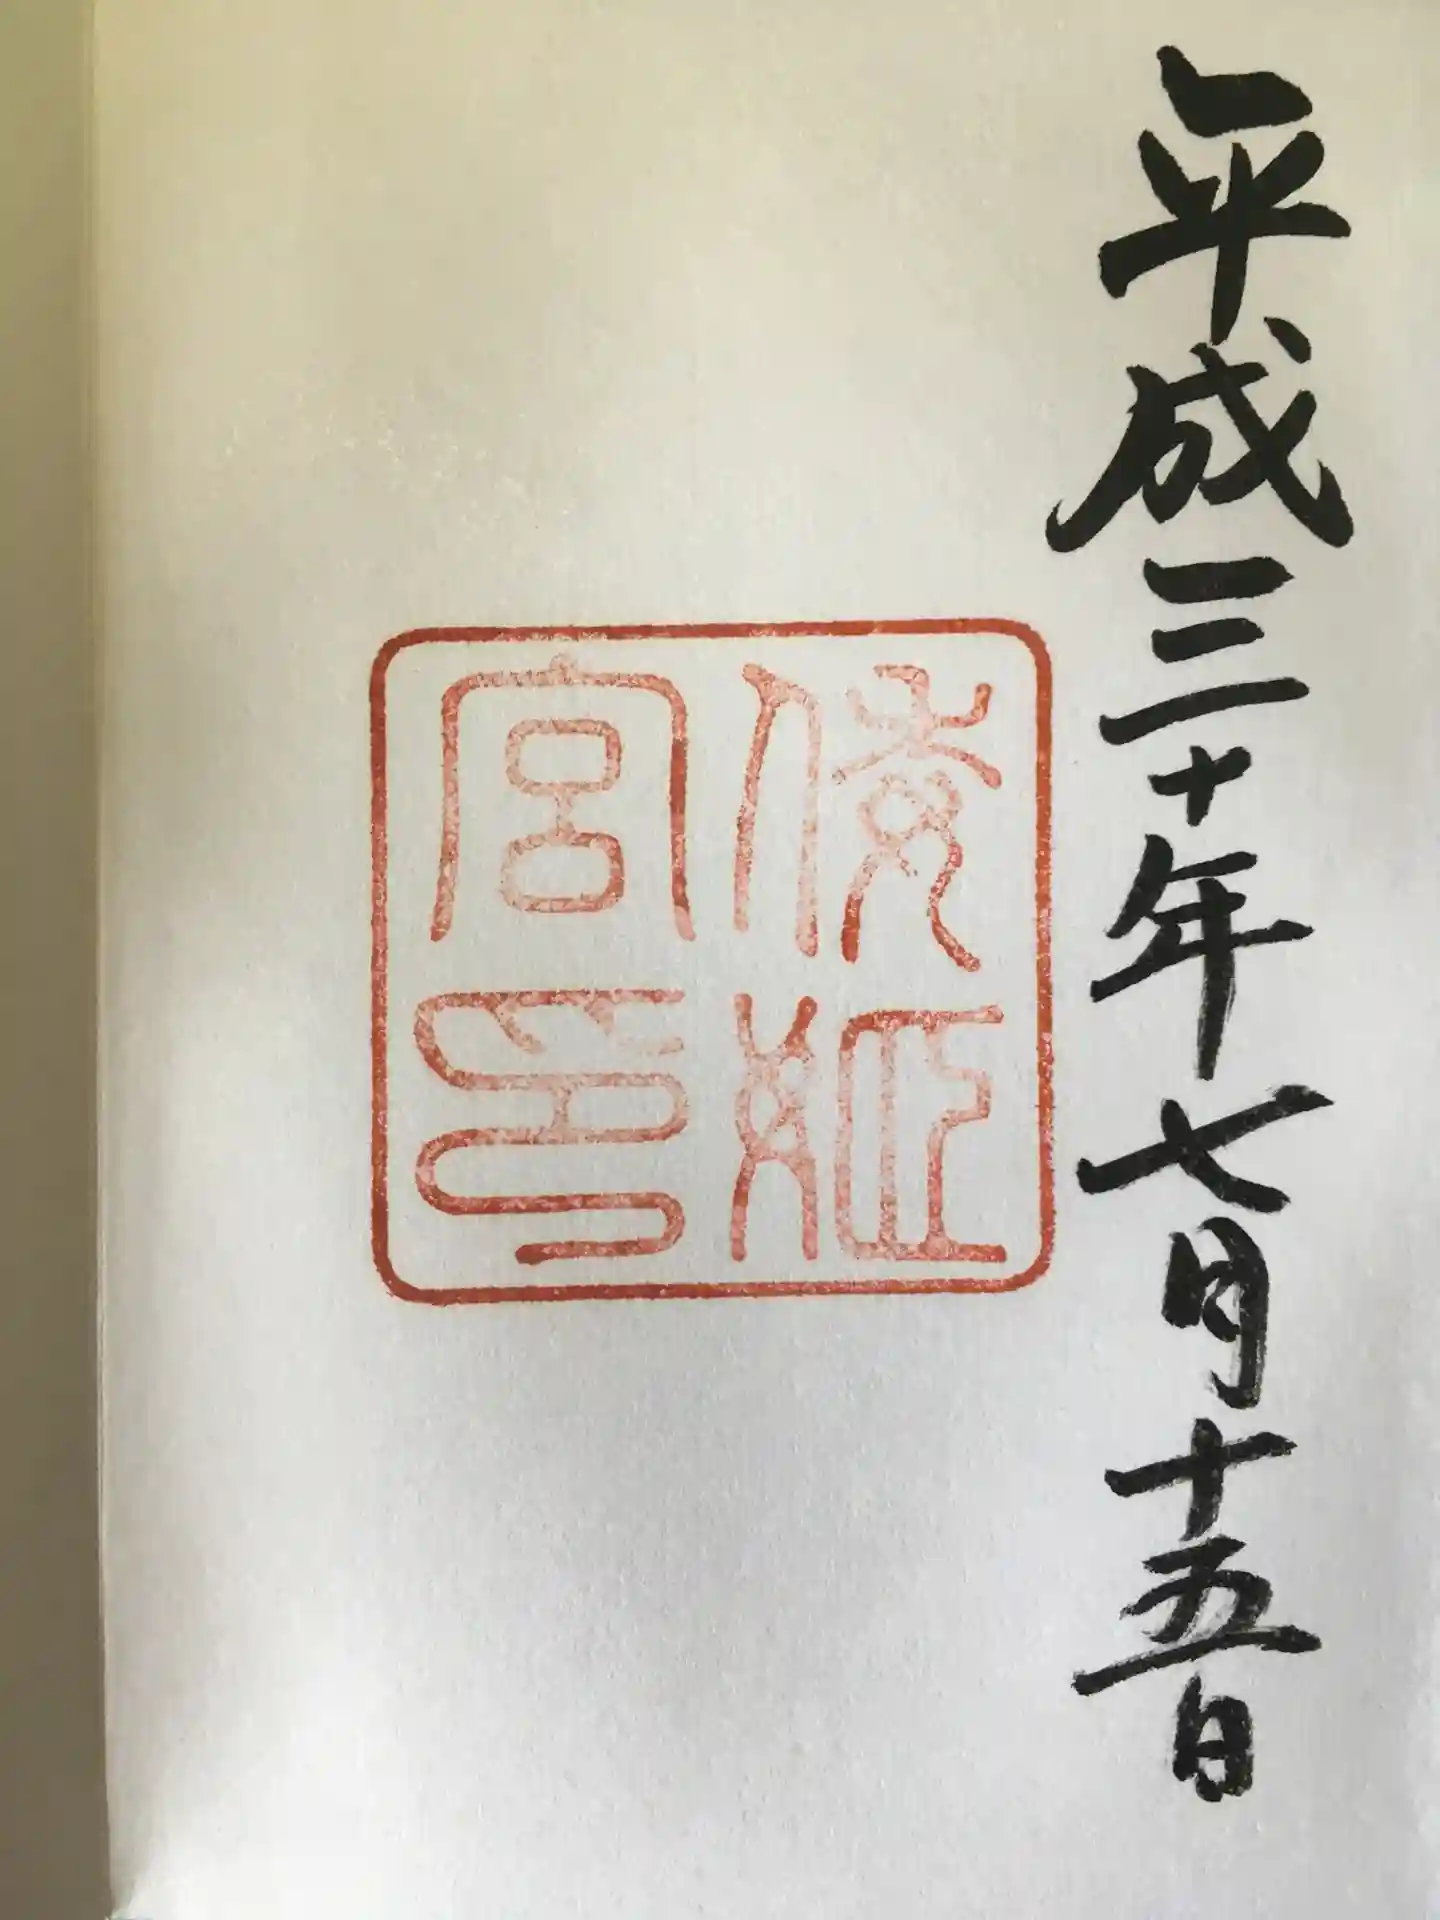 平成三十年七月十五日
倭姫宮印